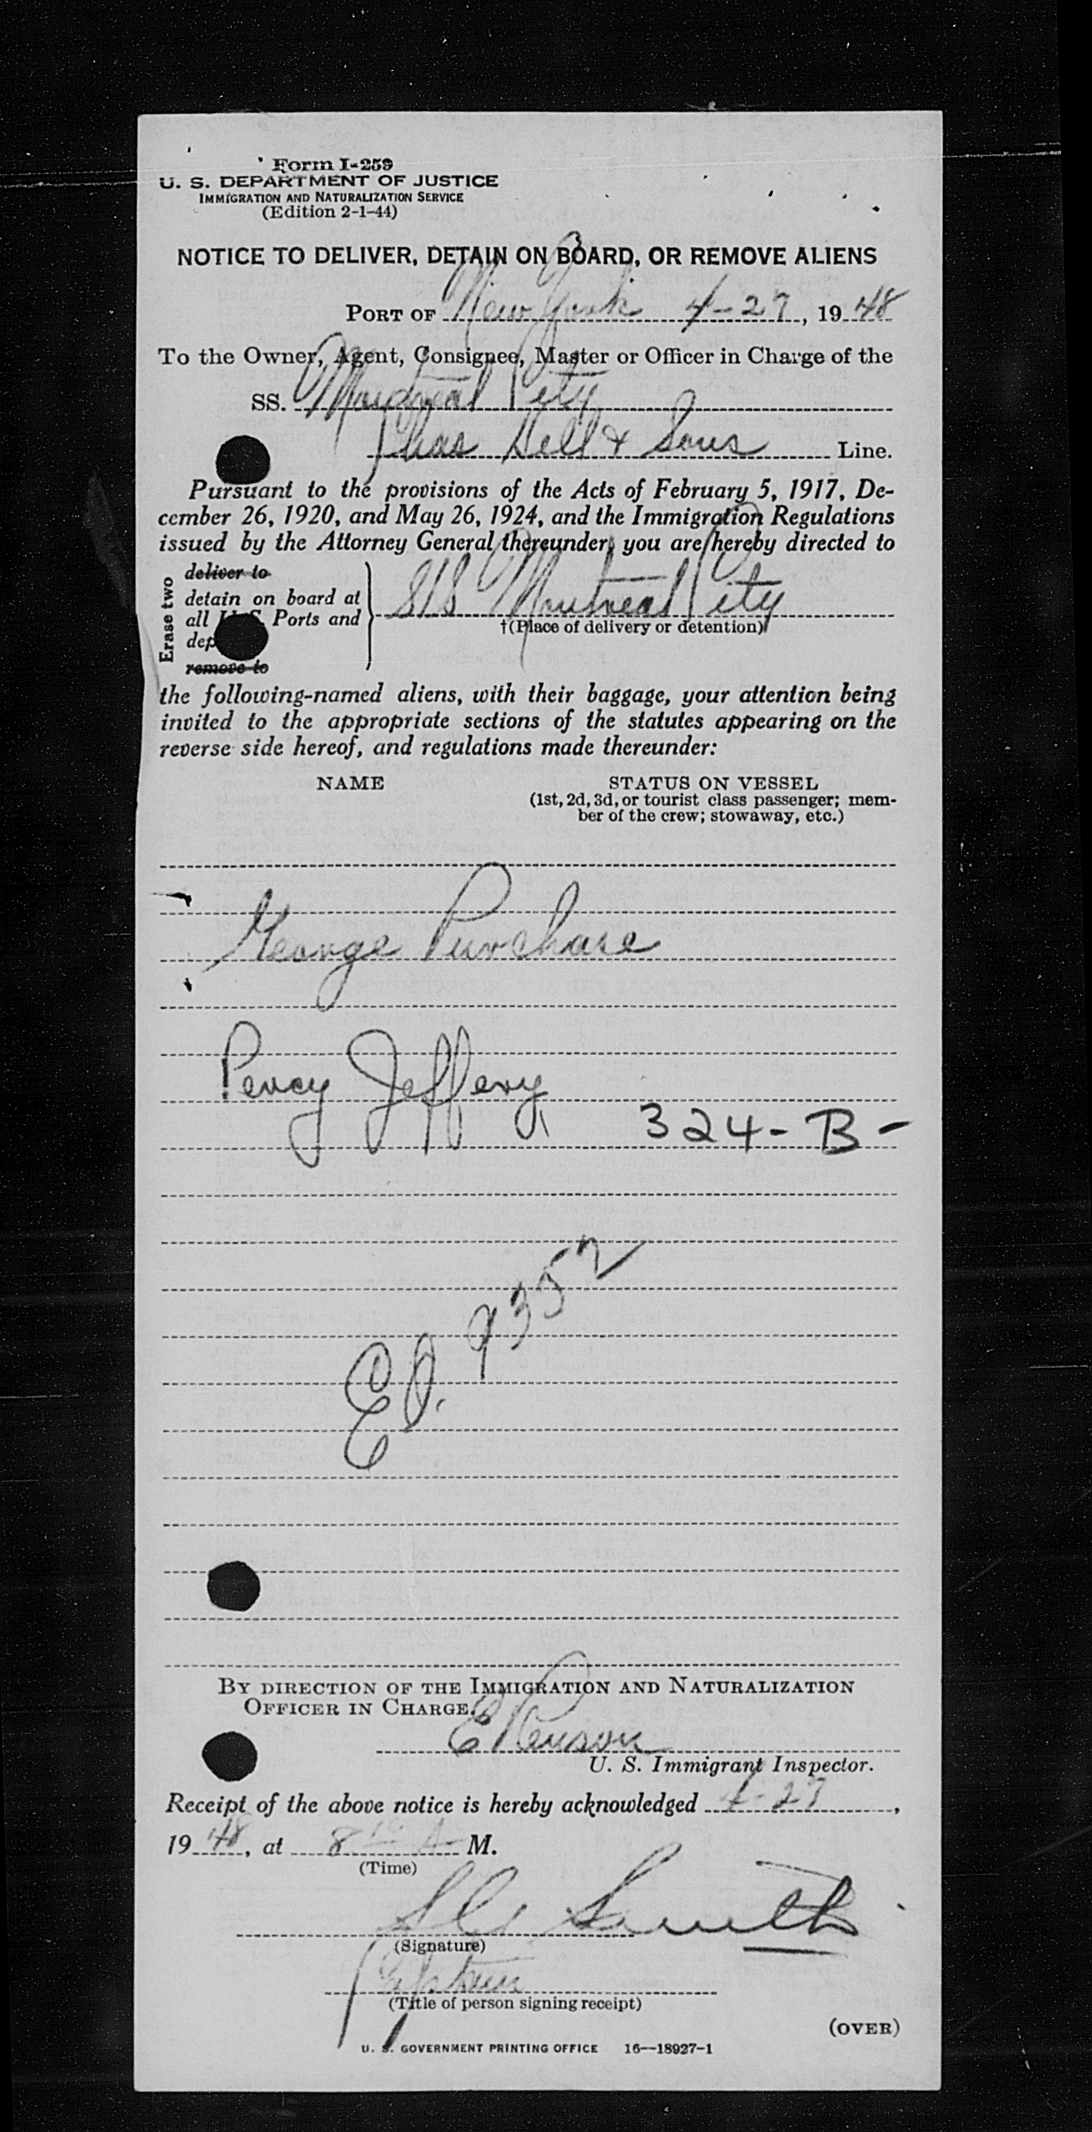 Form I-259
U. S. DEPARTMENT OF JUSTICE
IMMIGRATION AND NATURALIZATION SERVICE
(Edition 2-1-44)
NOTICE TO DELIVER, DETAIN ON BOARD, OR REMOVE ALIENS
PORT OF New York 4-27, 1948
To the Owner, Agent, Consignee, Master or Officer in Charge of the
SS. Montreal City
Chas Hill & Sons Line.
Pursuant to the provisions of the Acts of February 5, 1917, De-
cember 26, 1920, and May 26, 1924, and the Immigration Regulations
issued by the Attorney General thereunder, you are hereby directed to
Erase two
deliver to
detain on board at
all U.S. Ports and
dep
remove to
S/S Montreal City
†(Place of delivery or detention)
the following-named aliens, with their baggage, your attention being
invited to the appropriate sections of the statutes appearing on the
reverse side hereof, and regulations made thereunder:
NAME
STATUS ON VESSEL
(1st, 2d, 3d, or tourist class passenger; mem-
ber of the crew; stowaway, etc.)
George Purchase
Percy Jeffery
324-B-
9352
BY DIRECTION OF THE IMMIGRATION AND NATURALIZATION
OFFICER IN CHARGE.
U. S. Immigrant Inspector.
Receipt of the above notice is hereby acknowledged 4-27,
1948, at 8 A M.
(Time)
Smith
(Signature)
Captain
(Title of person signing receipt)
(OVER)
U. S. GOVERNMENT PRINTING OFFICE 16—18927-1